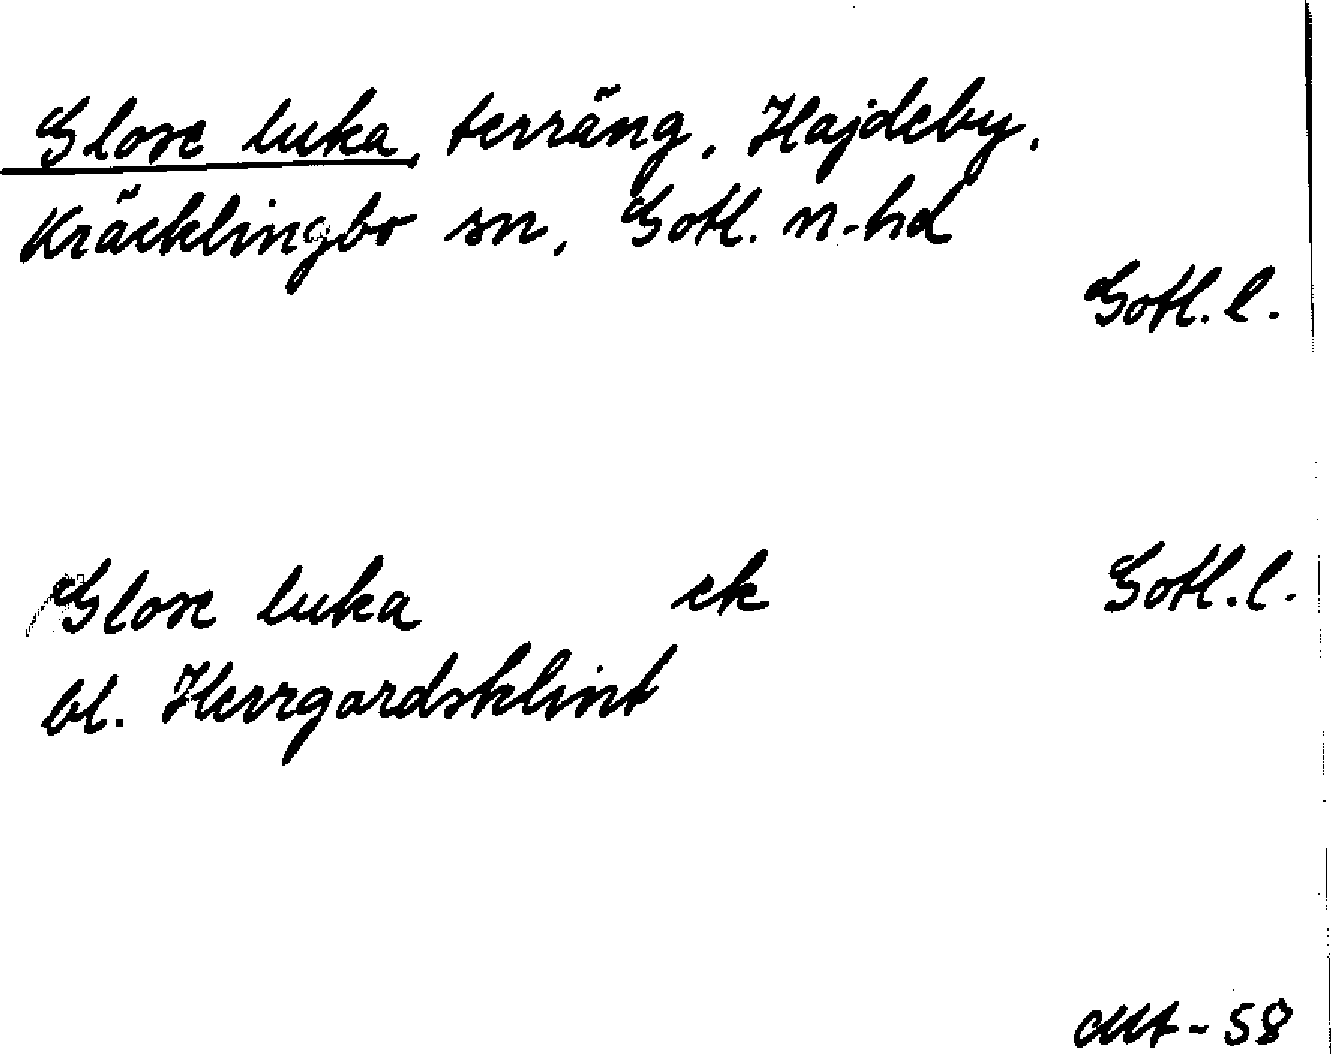 Glose luka, terräng, Hajdeby,
Kräcklingbo sn, Gotl. n. hd
Gotl. l.
Glose luka ek Gotl. l.
bl. Herrgårdsklint
-58